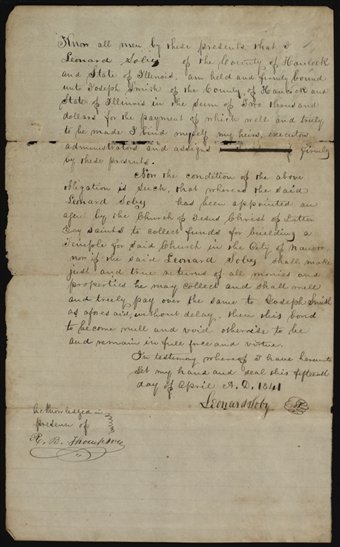 Know all men by these presents that I
Leonard Soby of the County of Hancock
and State of Illinois, am held and firmly bound
unto Joseph Smith of the County of Hancock and
State of Illinois in the sum of Two thousand
dollars for the payment of which well and truly
to be made I bind myself my heirs, executors
administrators and assigns firmly
by these presents.
Now the condition of the above
obligation is such, that whereas the said
Leonard Soby has been appointed an
agent by the Church of Jesus Christ of Latter
Day Saints to collect funds for building a
Temple for said Church in the City of Nauvoo
now if the said Leonard Soby shall make
just and true returns of all monies and
properties he may collect and shall well
and truly pay over the same to Joseph Smith
as aforesaid, without delay, then this bond
to become null and void otherwise to be
and remain in full force and virtue.
In testimony whereof I have hereunto
set my hand and seal this fifteenth
day of April A. D. 1841
Leonard Soby
Acknowledged in
presence of
R. B. Thompson